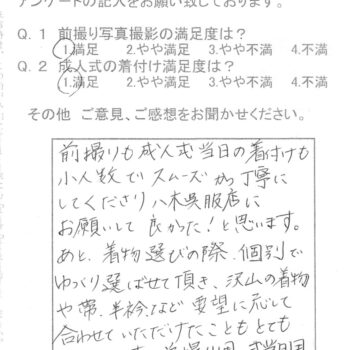 アンケートの記入をお願い致しております。
Q.1 前撮り写真撮影の満足度は？
1.満足 2.やや満足 3.やや不満 4.不満
Q.2 成人式の着付け満足度は？
1.満足 2.やや満足 3.やや不満 4.不満
その他 ご意見、ご感想をお聞かせください。
前撮りも成人式当日の着付けも
小人数でスムーズかつ丁寧に
してくださり八木呉服店に
お願いして良かった!と思います。
あと、着物選びの際、個別で
ゆっくり選ばせて頂き、沢山の着物
や帯、半衿など要望に応じて
合わせていただけたこともとても